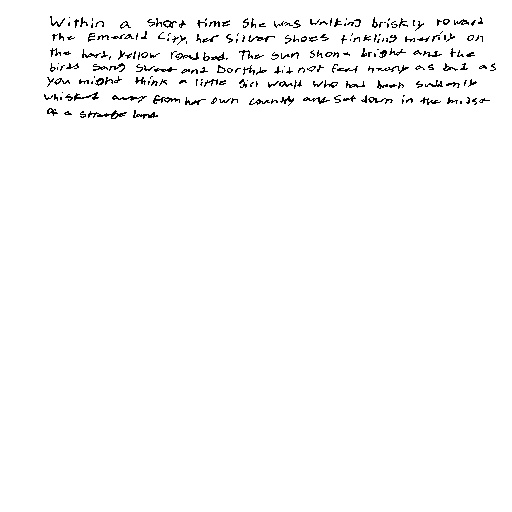 Within a short time she was walking briskly toward
the Emerald City, her Silver Shoes tinkling merrily on
the hard, yellow roadbed. The sun shone bright and the
birds sang sweet and Dorthy did not feel nearly as bad as
you might think a little girl would who had been suddenly
whisked away from her own country and set down in the midst
of a strange land.